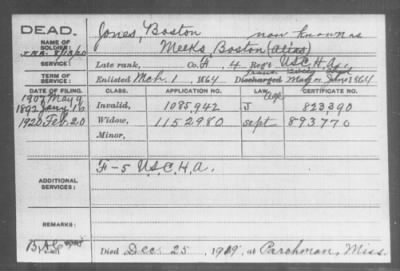 DEAD.
NAME OF SOLDIER:
Jones, Boston now known as
Meeks, Boston (alias)
SERVICE:
Late rank, Co. A, 4 Regt U.S.C.H.A.
TERM OF SERVICE:
Enlisted Mch. 1, 1864 Discharged 1864
DATE OF FILING. CLASS. APPLICATION NO. LAW. CERTIFICATE NO.
1907 May 9
1892 Jany 16 Invalid, 1085,942 J Age 823390
1920 Feb. 20 Widow, 1152980 Sept 893,770
Minor,
ADDITIONAL SERVICES:
F-5 U.S.C.H.A.
REMARKS:
Died Dec. 25, 1919, at Parchman, Miss.